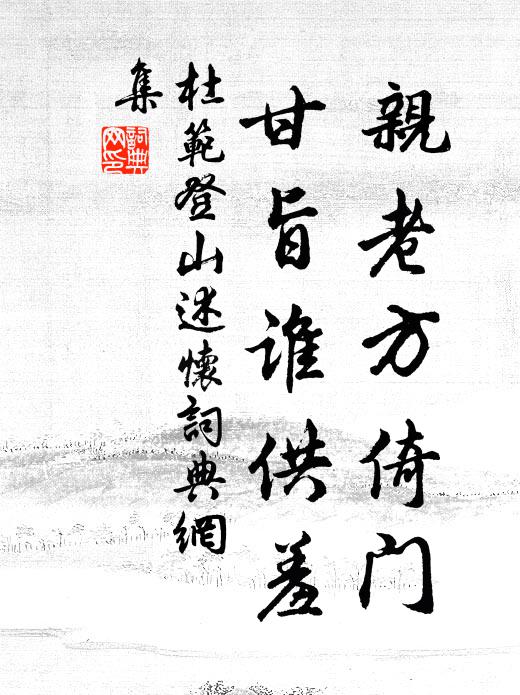 親老方倚門
甘旨誰供羞
杜範登山述懷詞典網
集
詞典
网印